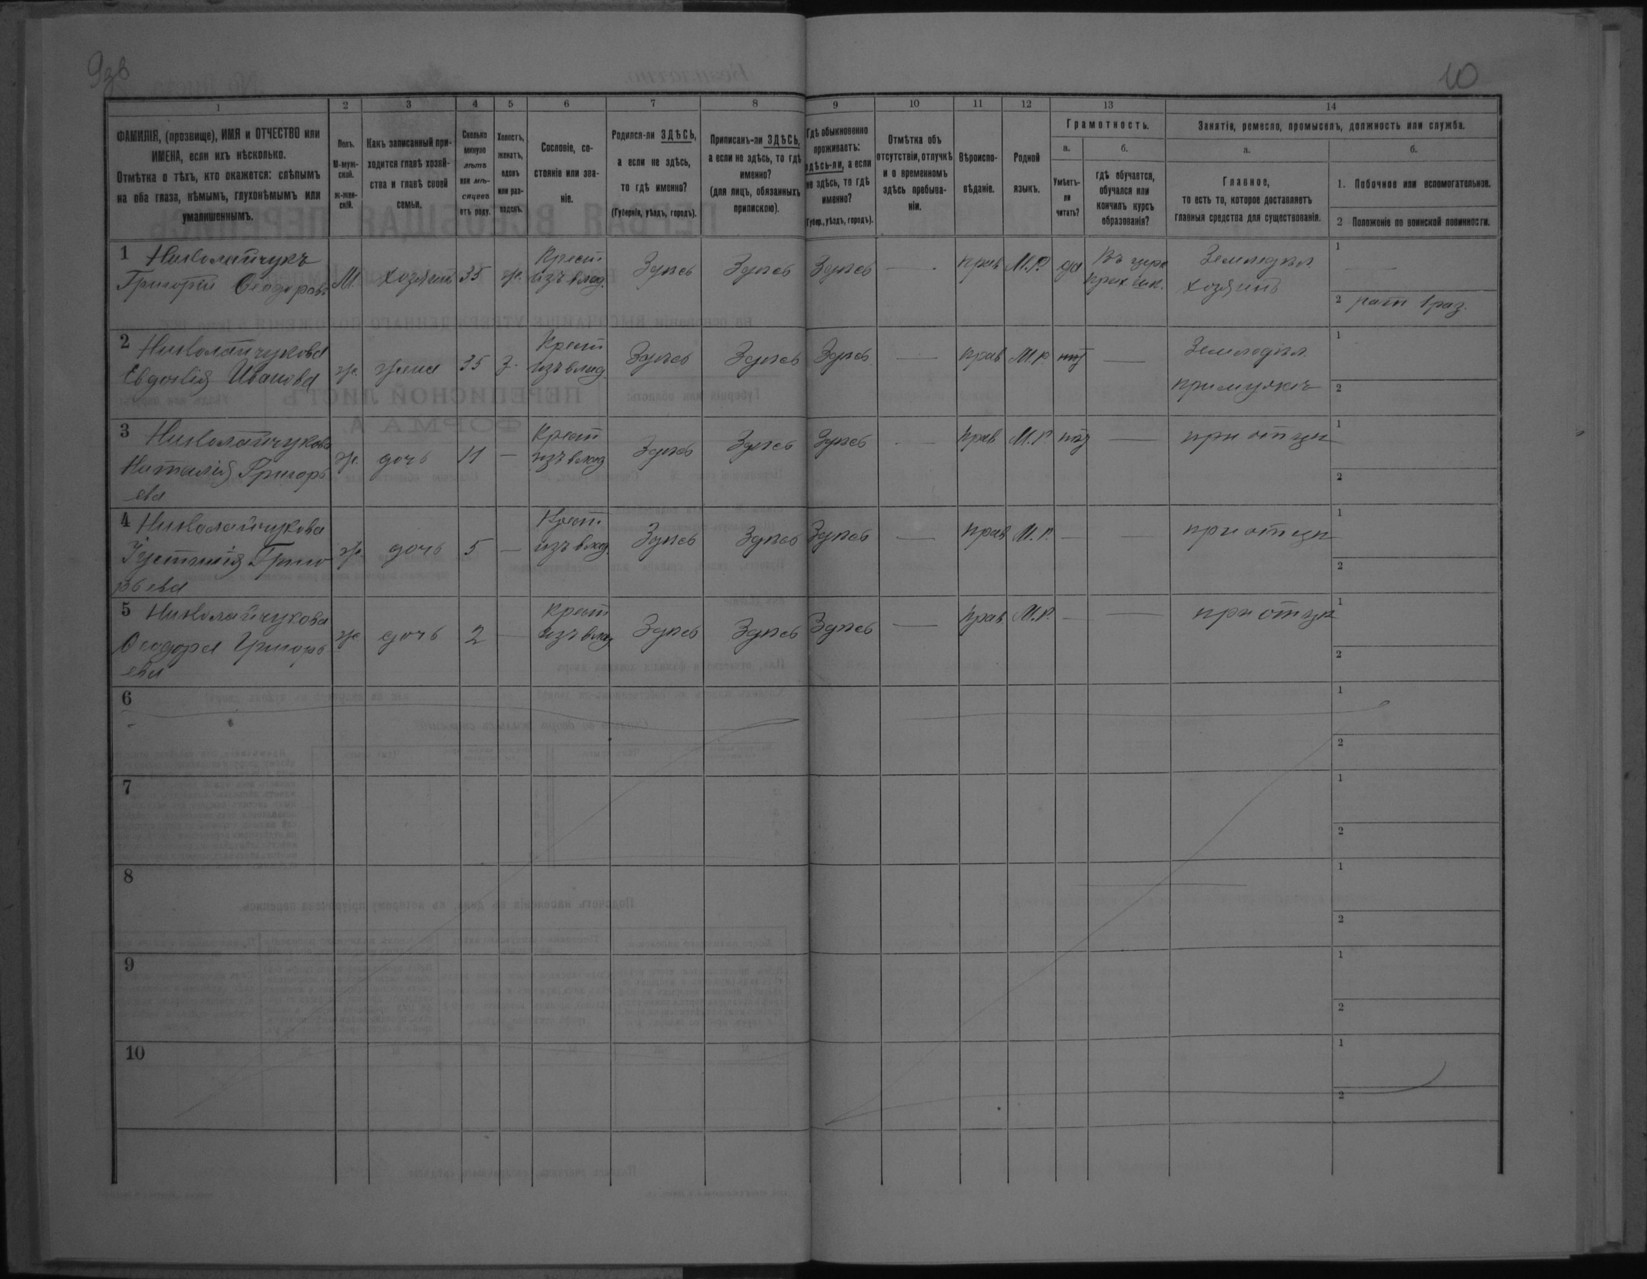 9зв
10
1 2 3 4 5 6 7 8 9 10 11 12 13 14
ФАМИЛІЯ, (прозвище), ИМЯ и ОТЧЕСТВО или
ИМЕНА, если ихъ нѣсколько.
Отмѣтка о тѣхъ, кто окажется: слѣпымъ
на оба глаза, нѣмымъ, глухонѣмымъ или
умалишеннымъ.
Полъ.
М-муж-
ской.
Ж-жен-
скій.
Какъ записанный при-
ходится главѣ хозяй-
ства и главѣ своей
семьи.
Сколько
минуло
лѣтъ
или мѣ-
сяцевъ
отъ роду.
Холостъ,
женатъ,
вдовъ
или раз-
веденъ.
Сословіе, со-
стояніе или зва-
ніе.
Родился-ли ЗДѢСЬ,
а если не здѣсь,
то гдѣ именно?
(Губернія, уѣздъ, городъ).
Приписанъ-ли ЗДѢСЬ,
а если не здѣсь, то гдѣ
именно?
(для лицъ, обязанныхъ
припискою).
Гдѣ обыкновенно
проживаетъ:
здѣсь-ли, а если
не здѣсь, то гдѣ
именно?
(Губерн., уѣздъ, городъ).
Отмѣтка объ
отсутствіи, отлучкѣ
и о временномъ
здѣсь пребыва-
ніи.
Вѣроиспо-
вѣданіе.
Родной
языкъ.
Грамотность.
а. б.
Умѣетъ-
ли
читать?
гдѣ обучается,
обучался или
кончилъ курсъ
образованія?
Занятіе, ремесло, промыселъ, должность или служба.
а. б.
Главное,
то есть то, которое доставляетъ
главныя средства для существованія.
1. Побочное или вспомогательное.
2 Положеніе по воинской повинности.
1 Николайчукъ
Григорій Ѳеодоровъ
М. хозяинъ 35 ж.
Крест
изъ влад.
Здѣсь Здѣсь Здѣсь — прав М.Р. да
Въ церк
прих шк.
Земледѣл
хозяинъ
1 —
2 рат 1 раз.
2 Николайчукова
Евдокія Иванова
ж. жена 35 з.
Крест
изъ влад
Здѣсь Здѣсь Здѣсь — прав М.Р. нѣт —
Земледѣл
1
2
3 Николайчукова
Наталія Григорь
ева
ж. дочь 11 —
Крест
изъ влад
Здѣсь Здѣсь Здѣсь — прав М.Р. нѣт — при отцѣ
1
2
4 Николайчукова
Григо
рьева
ж. дочь 5 —
Крест.
изъ влад
Здѣсь Здѣсь Здѣсь — прав М.Р. — — при отцѣ
1
2
5 Николайчукова
Ѳеодора Григорь
ева
ж. дочь 2 —
Крест
изъ влад
Здѣсь Здѣсь Здѣсь — прав М.Р. — — при отцѣ
1
2
6
1
2
7
1
2
8
1
2
9
1
2
10
1
2